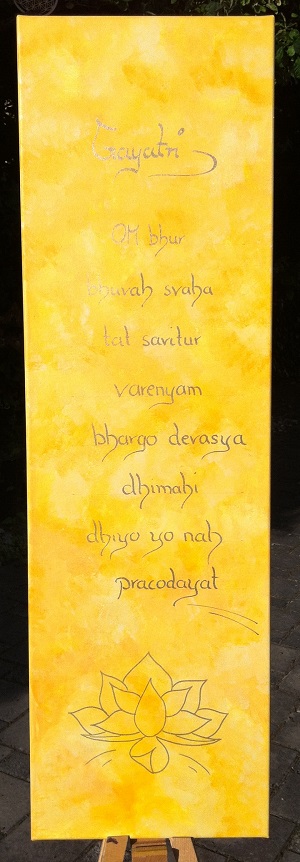 Gayatri
OM bhur
bhuvah svaha
tat savitur
varenyam
bhargo devasya
dhimahi
dhiyo yo nah
pracodayat